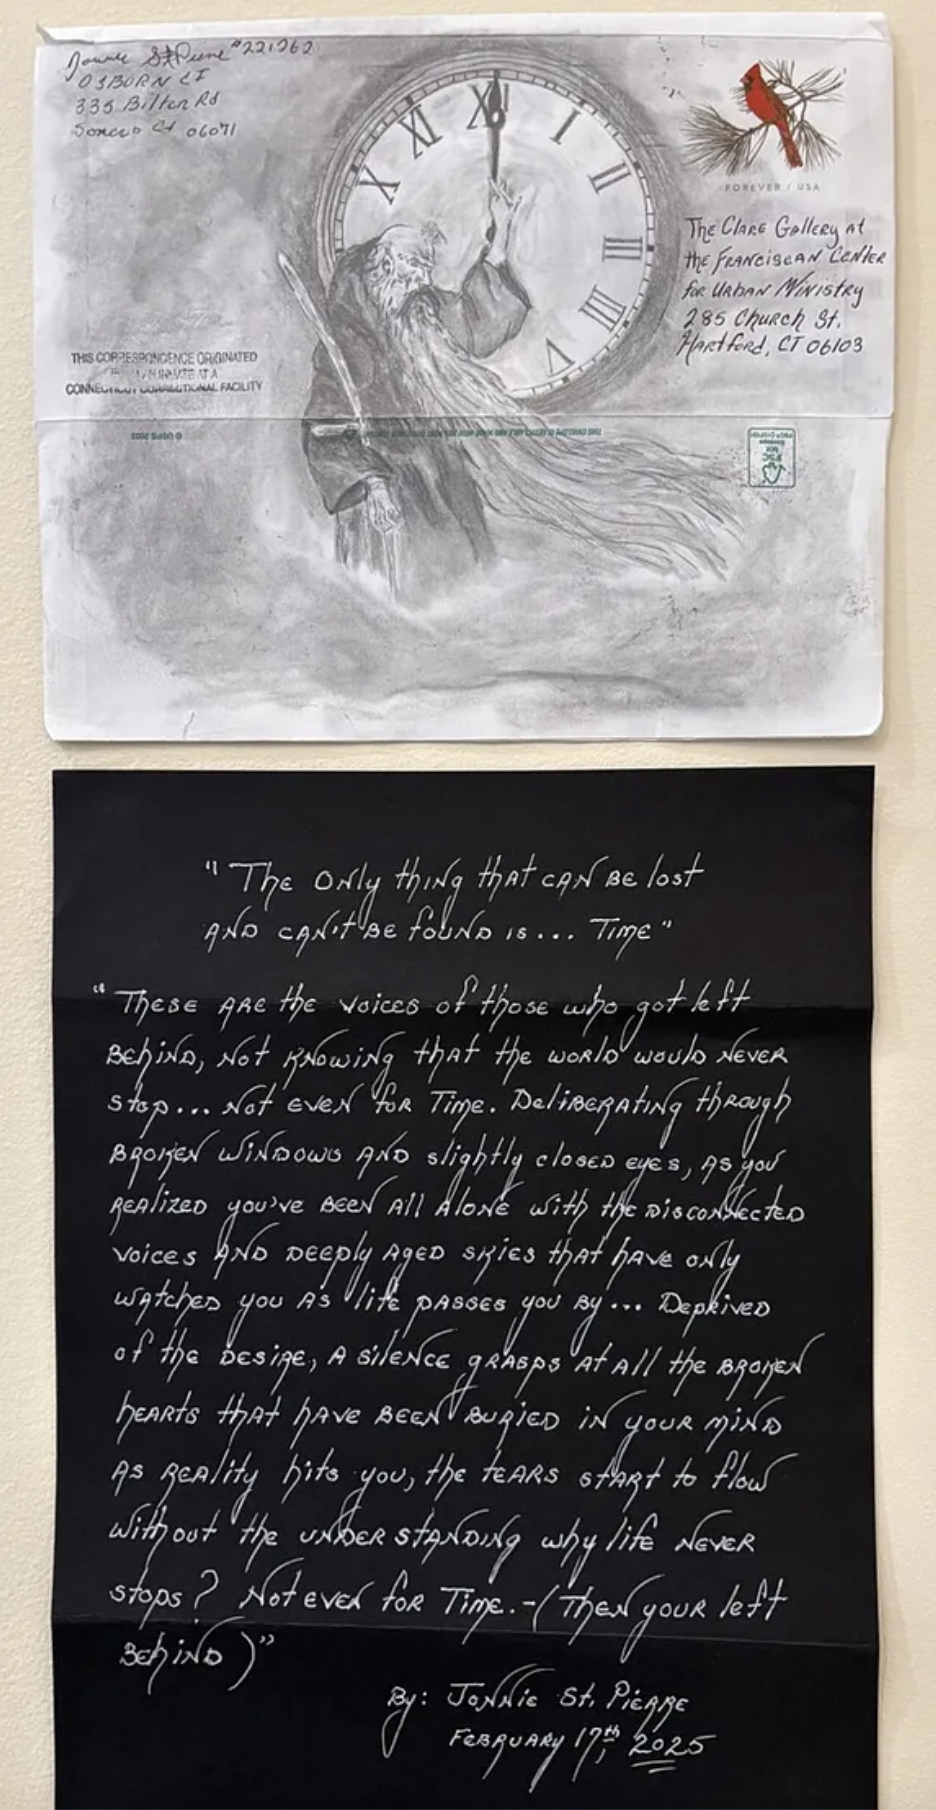 St.Pierre #221262
OSBORN CI
335 Bilton Rd
Somers Ct 06071
FOREVER / USA
The Clare Gallery at
the Franciscan Center
for Urban Ministry
285 Church St.
Hartford, CT 06103
THIS CORRESPONDENCE ORIGINATED
INMATE AT A
CONNECTICUT CORRECTIONAL FACILITY
X XI XII I II III IIII V
© USPS 2022
FSC
"The only thing that can be lost
and can't be found is... Time"
"These are the voices of those who got left
behind, not knowing that the world would never
stop... Not even for Time. Deliberating through
broken windows and slightly closed eyes, as you
realized you've been all alone with the disconnected
voices and deeply aged skies that have only
watched you as life passes you by... Deprived
of the desire, a silence grasps at all the broken
hearts that have been buried in your mind
as reality hits you, the tears start to flow
without the understanding why life never
stops? Not even for Time.-(Then your left
behind)"
By: Jonnie St. Pierre
February 17th, 2025